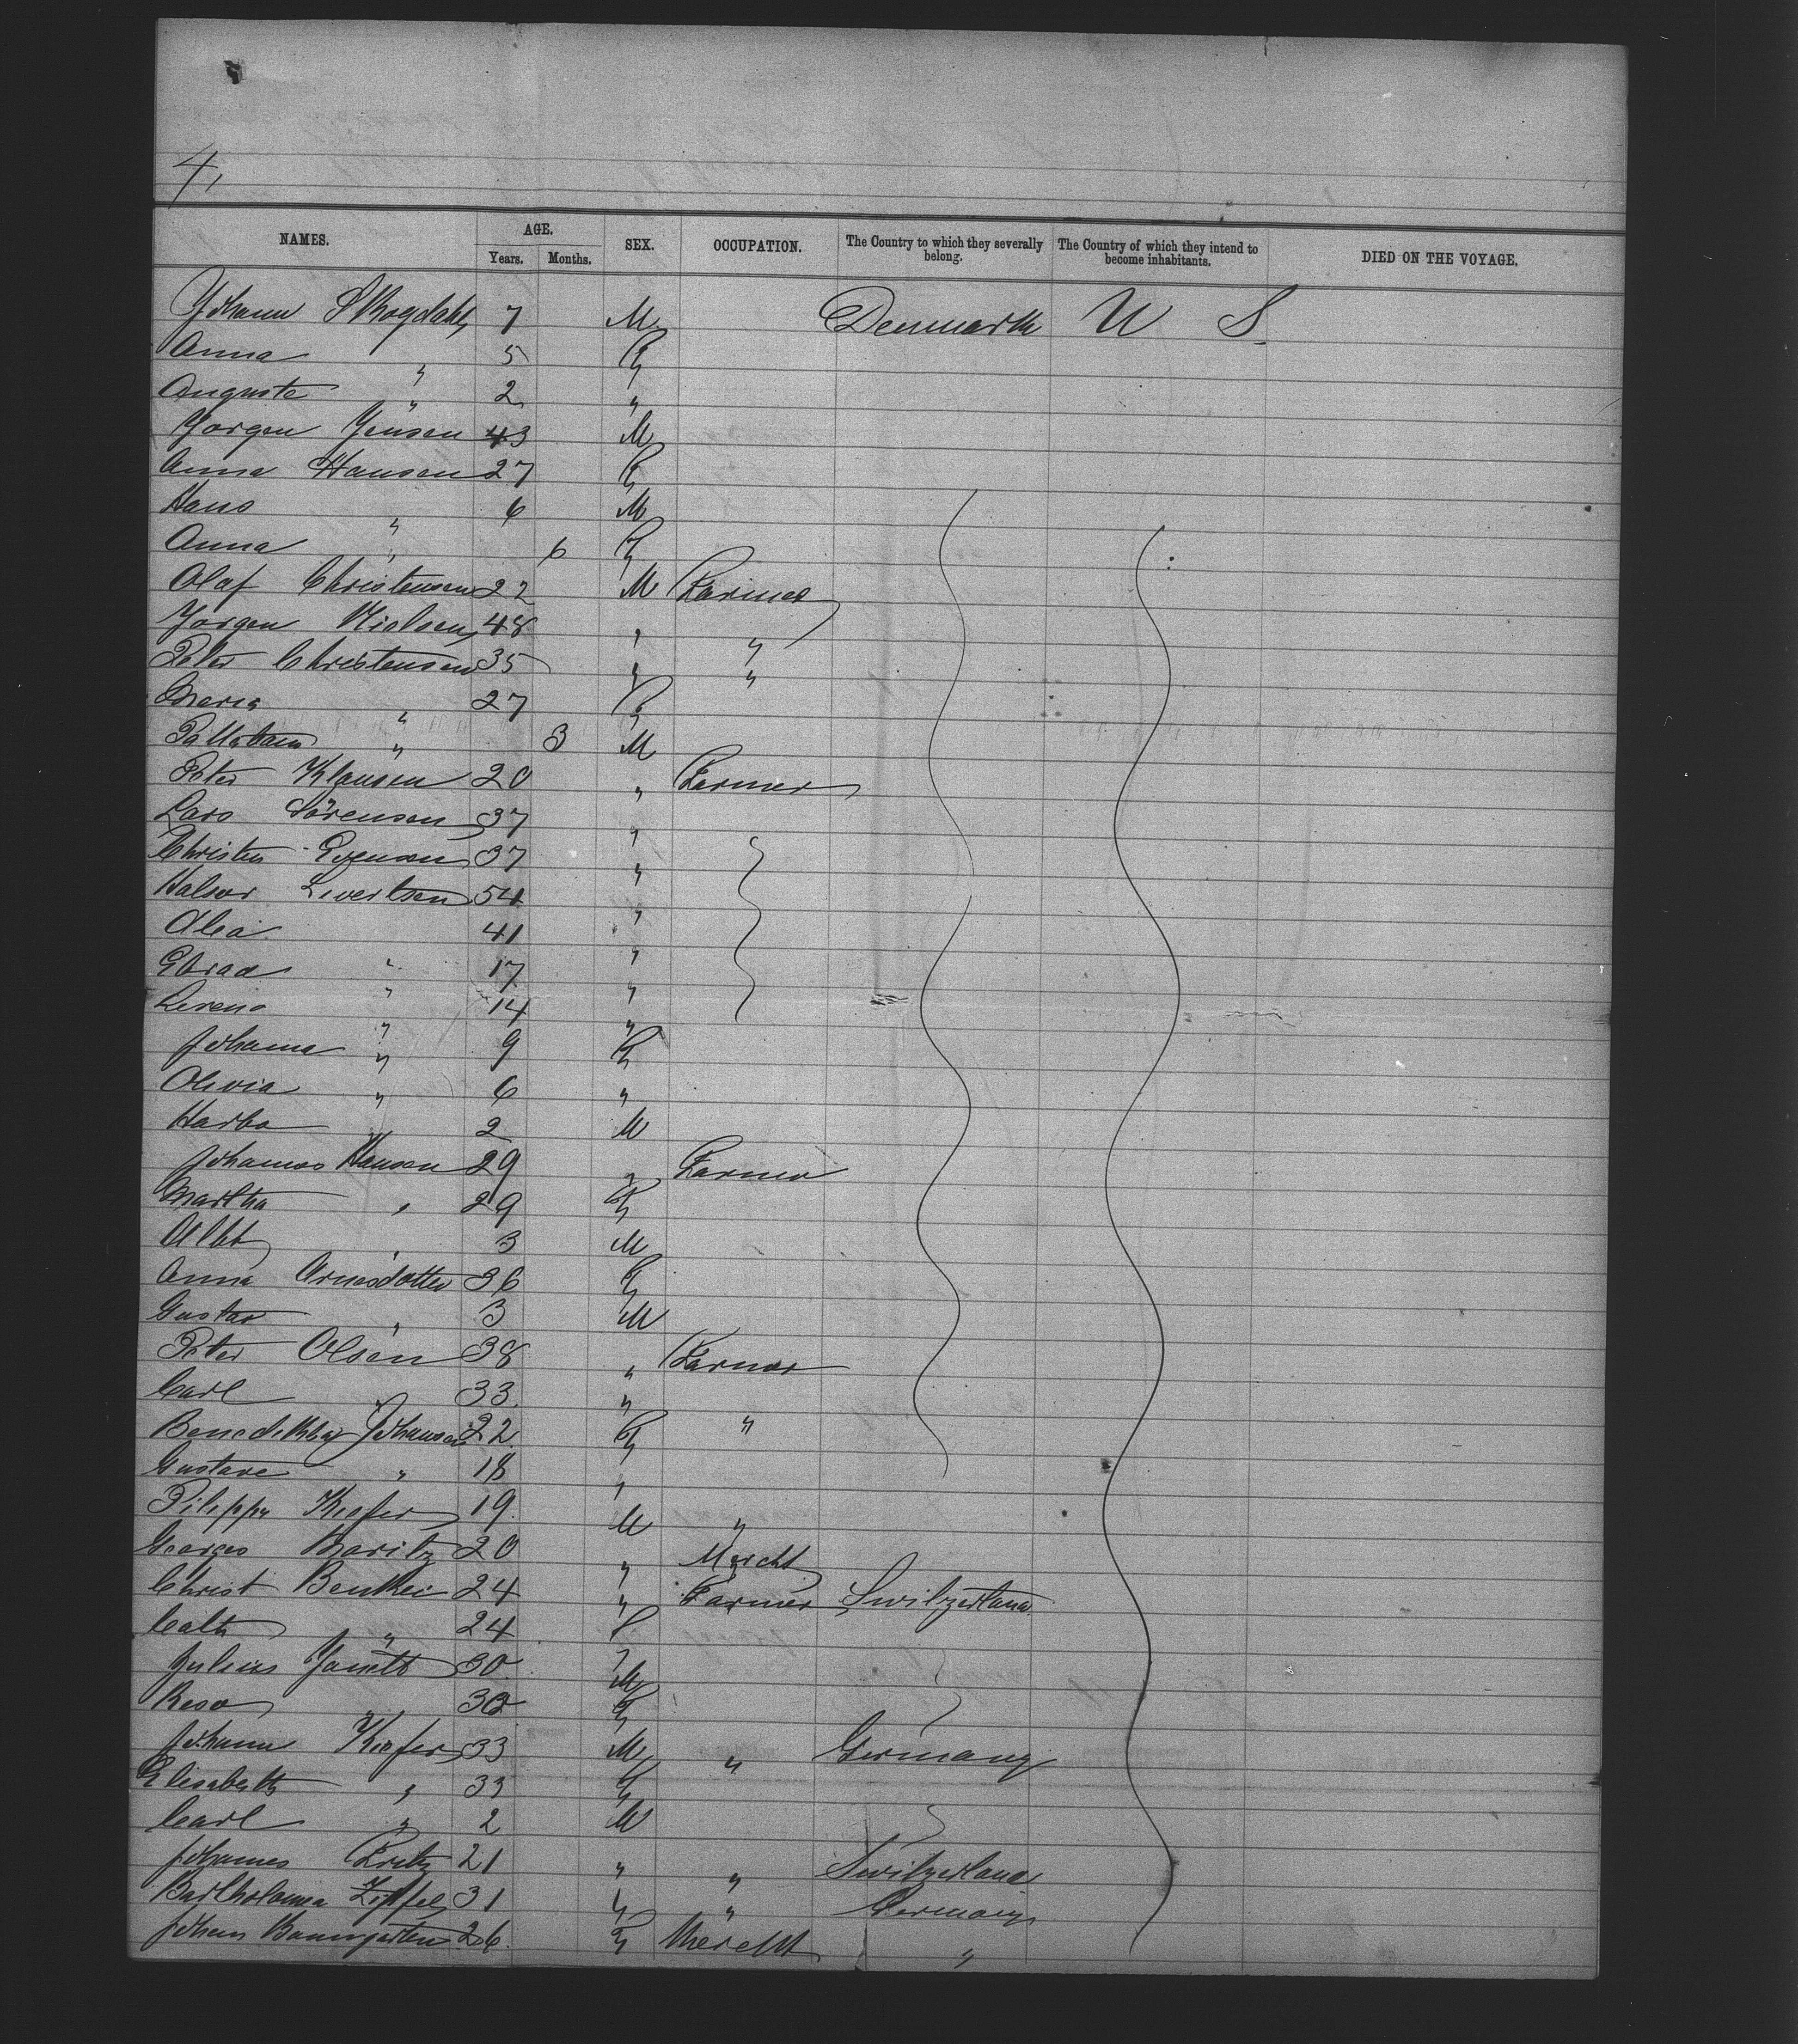 4,
NAMES. AGE. SEX. OCCUPATION. The Country to which they severally belong. The Country of which they intend to become inhabitants. DIED ON THE VOYAGE.
Years. Months.
Johann Skogdahl 7 M Denmark U S
Anna " 5 F
Auguste " 2 "
Jorgen Jensen 43 M
Anna Hansen 27 F
Hans " 6 M
Anna " 6 F
Olaf Christensen 22 M Farmer
Jorgen Nielsen 48 " "
Peter Christensen 35 " "
Maria " 27 F
" 3 M
Peter Klausen 20 " Farmer
Lars Sörensen 37 "
Christen Evensen 37 "
Halvor Livertsen 54 "
Alea 41 "
" 17 "
" 14 "
Johanna " 9 F
Olivia " 6 "
" 2 M
Johannes Hansen 29 " Farmer
Martha " 29 F
Albt " 3 M
Anna Arnesdotter 36 F
Gustav " 3 M
Peter Olsen 38 " Farmer
Carl " 33 " "
Johansen 22 F
Gustave " 18 "
Kiefer 19 M "
Georges 20 " Mercht
Christ 24 " Farmer Switzerland
Cath " 24 F
Julius 30 M
Rosa " 30 F
Johann Kiefer 33 M " Germany
Elisabeth " 33 F
Carl " 2 M
Johannes 21 " " Switzerland
Bartholomea Zipfel 31 " " Germany
Johann Baumgarten 26 F Mercht "